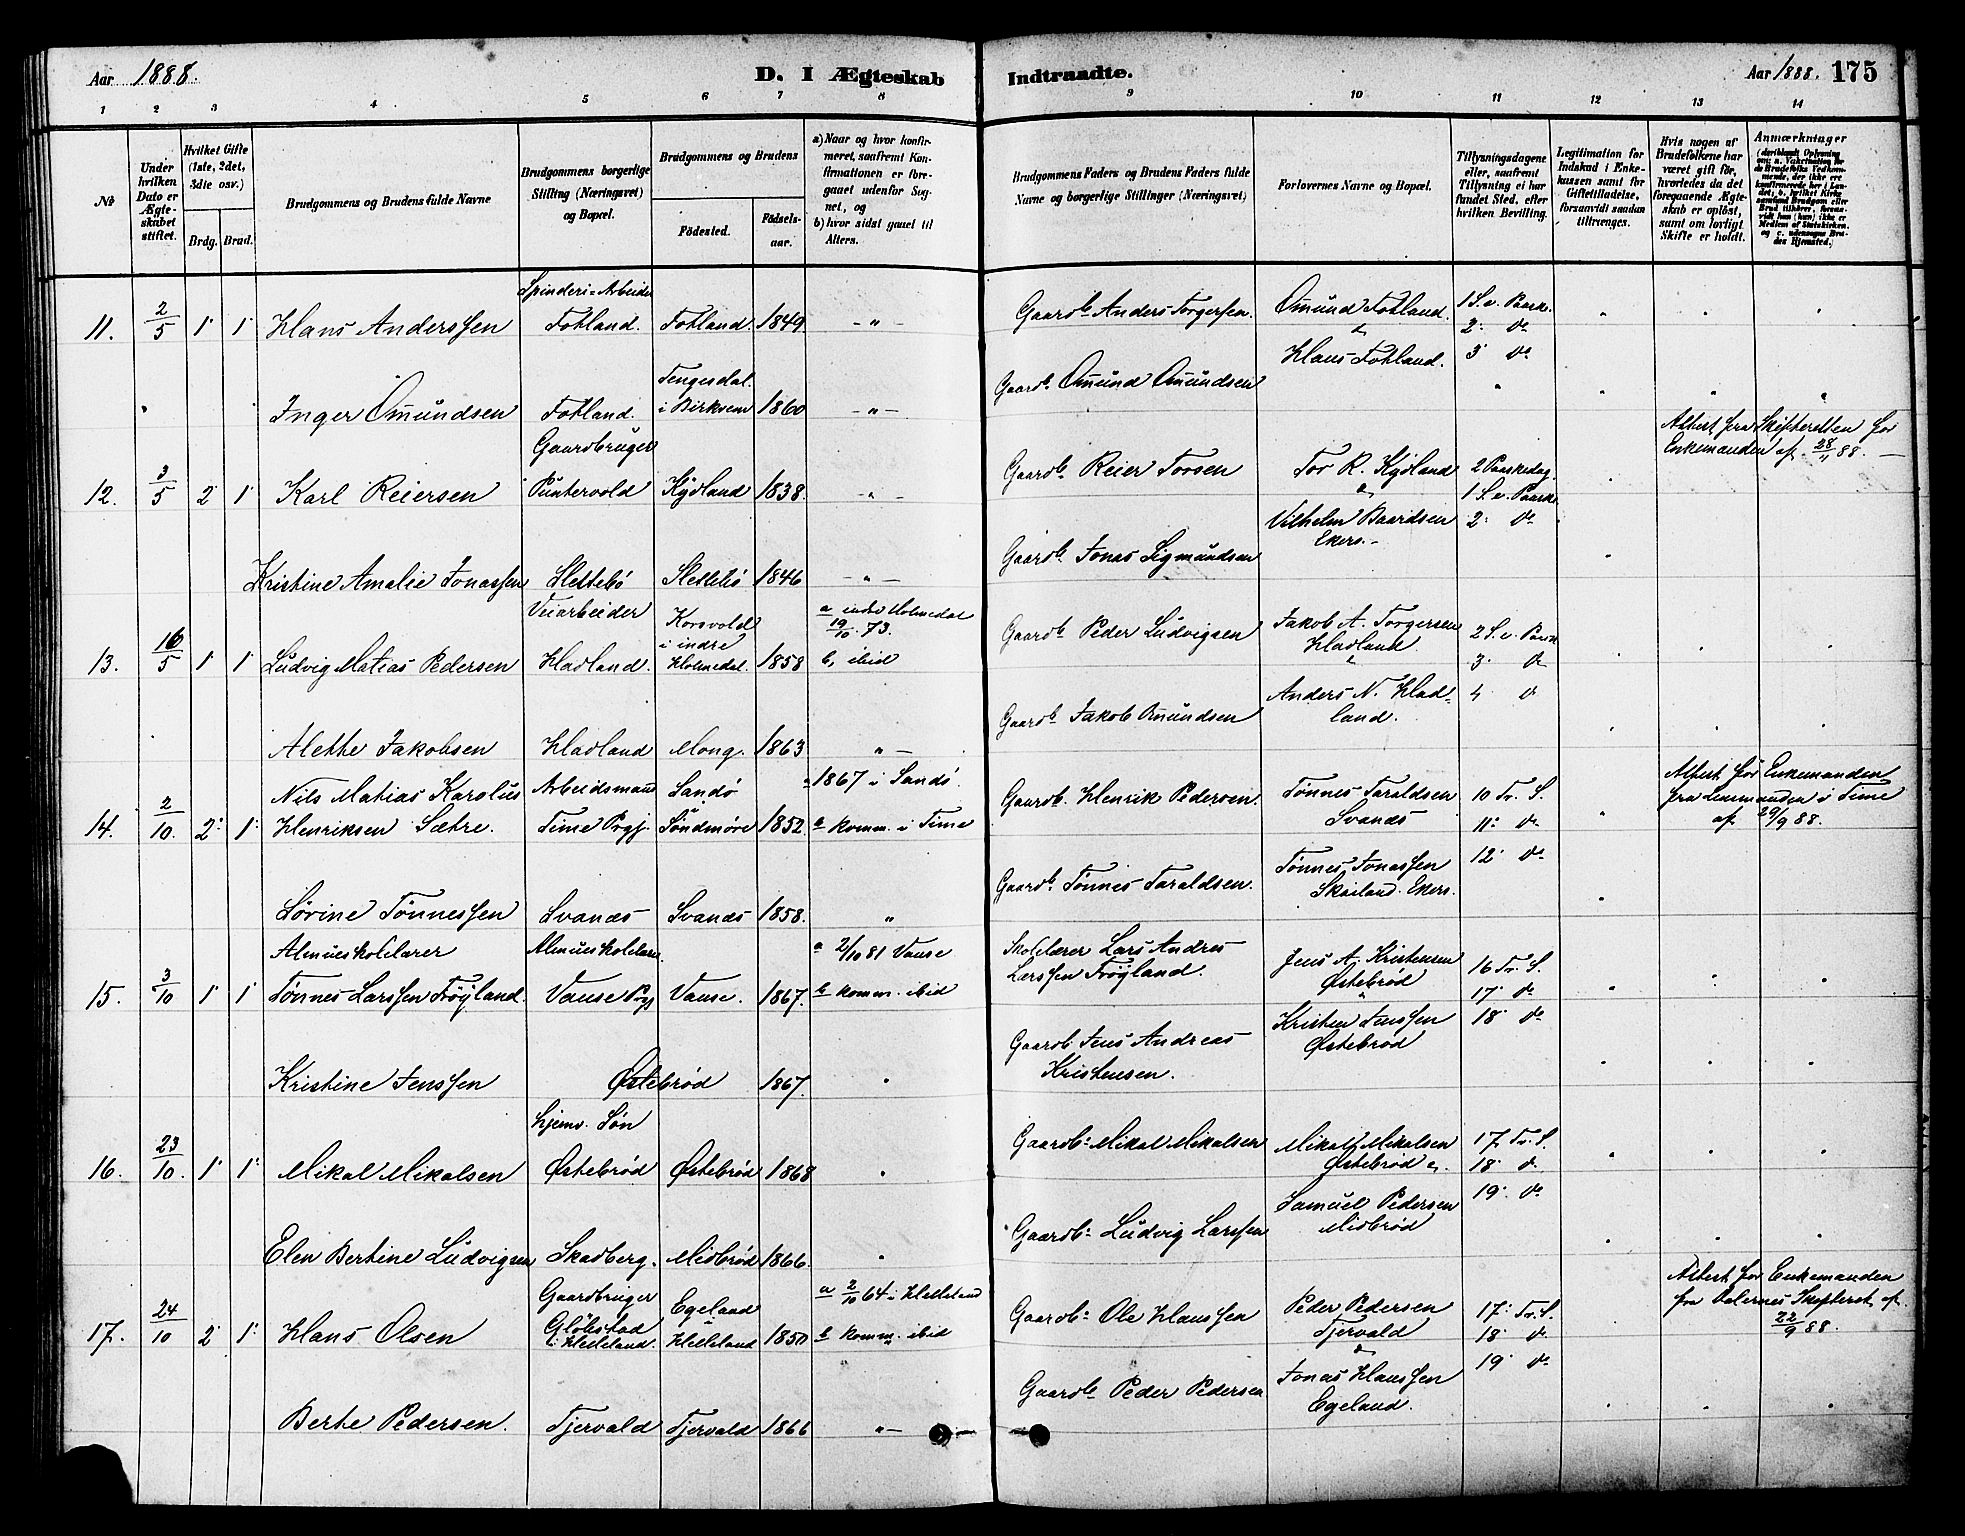 Aar 1888.
D. I Ægteskab
Indtraadte.
Aar 1888. 175
1 2 3 4 5 6 7 8 9 10 11 12 13 14
No
Under hvilken Dato er Ægteskabet stiftet.
Hvilket Gifte (1ste, 2det, 3die osv.)
Brdg. Brud.
Brudgommens og Brudens fulde Navne
Brudgommens borgerlige Stilling (Næringsvei) og Bopæl.
Brudgommens og Brudens
Födested.
Födsels-aar.
a) Naar og hvor konfirmeret, saafremt Konfirmationen er foregaaet udenfor Sognet, og
b) hvor sidst gaaet til Alters.
Brudgommens Faders og Brudens Faders fulde Navne og borgerlige Stillinger (Næringsvei)
Forlovernes Navne og Bopæl.
Tillysningsdagene eller, saafremt Tillysning ei har fundet Sted, efter hvilken Bevilling.
Legitimation for Indskud i Enkekassen samt for Giftetilladelse, forsaavidt saadan tiltrænges.
Hvis nogen af Brudefolkene har været gift för, hvorledes da det foregaaende Ægteskab er oplöst, samt om lovligt Skifte er holdt.
Anmærkninger
11. 2/5 1 1 Hans Anderssen Spinderi-Arbeider Fotland. Fotland. 1849 - " - Gaardb. Anders Torgersen. Omund Fotland. & Hans Fotland. 1 S. e. Paask. 2. do 3 do
Inger Omundsen Fotland. Tengesdal i Birkrem 1860 - " - Gaardb. Omund Omundsen
12. 3/5 2 1 Karl Reiersen Gaardbruger Puntervold Kydland 1838 - " - Gaardb. Reier Torsen Tor R. Kydland & Vilhelm Baardsen Ekers. 2 Paaskedag 1 S. e. Paaske 2. do Attest fra Skifteretten for Enkemanden af 88.
Kristine Amalie Jonassen Slettebö Slettebö 1846 - " - Gaardb. Jonas Sigmundsen
13. 16/5 1 1 Ludvig Matias Pedersen Veiarbeider Hadland. Korsvold i indre Holmedal. 1858 a indre Holmedal 19/10 73. b. ibid Gaardb. Peder Ludvigsen Jakob A. Torgersen Hadland & Anders N. Hadland. 2 S. e. Paask 3. do 4 do
Alette Jakobsen Hadland Mong. 1863 " - Gaardb. Jakob Omundsen
14. 2/10. 2. 1. Nils Matias Karolus Henriksen Sætre. Arbeidsmand Time Prgj. Sandö Söndmöre 1852 a 1867 i Sandö. b komm. i Time Gaardb. Henrik Pedersen. Tönnes Taraldsen Svanæs 10 Tr. S. 11. do 12. do Attest for Enkemanden fra Lensmanden i Time af 29/9 88.
Sörine Tönnessen Svanæs Svanæs 1858. " Gaardb. Tönnes Taraldsen. Tönnes Jonassen Skailand. Ekers.
15. 3/10 1 1 Almueskolelærer Tönnes Larssen Tröyland. Almueskolelærer Vanse Prgj Vanse. 1867. a 2/10 81 Vanse b komm. ibid Skolelærer Lars Andres Larssen Tröyland. Jens A. Kristensen Østebröd & Kristen Jenssen Østebröd 16 Tr. S. 17. do 18 do
Kristine Jenssen Østebröd 1867. Gaardb. Jens Andreas Kristensen.
16. 23/10. 1 1 Mikal Mikalsen hjemv. Sön Østebröd Østebröd 1868 Gaardb. Mikal Mikalsen Mikal Mikalsen Østebröd & Samuel Pedersen Midbröd 17. Tr. S. 18. do 19. do
Elen Bertine Ludvigsen Skadberg. Midbröd 1866. Gaardb. Ludvig Larssen
17. 24/10 2 1 Hans Olsen Gaardbruger Glöbstad i Helleland. Egeland i Helleland 1850 a 2/10 64 i Helleland b komm. ibid Gaardb. Ole Hanssen Peder Pedersen Tjervald & Jonas Hanssen Egeland. 17. Tr. S. 18. do 19. do Attest for Enkemanden fra Dalernes Skifteret af 22/9 88.
Berte Pedersen. Tjervald Tjervald 1866 " - Gaardb. Peder Pedersen